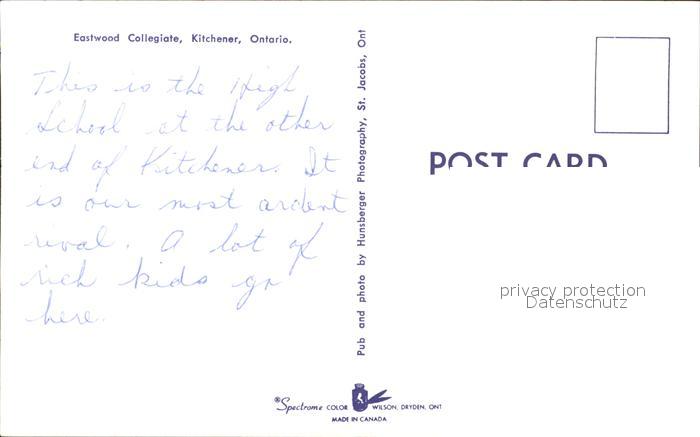 Eastwood Collegiate, Kitchener, Ontario.
This is the High
School at the other
end of Kitchener. It
is our most ardent
rival. A lot of
rich kids go
here.
Pub and photo by Hunsberger Photography, St. Jacobs, Ont
POST CARD
privacy protection
Datenschutz
®Spectrome COLOR WILSON, DRYDEN, ONT
MADE IN CANADA